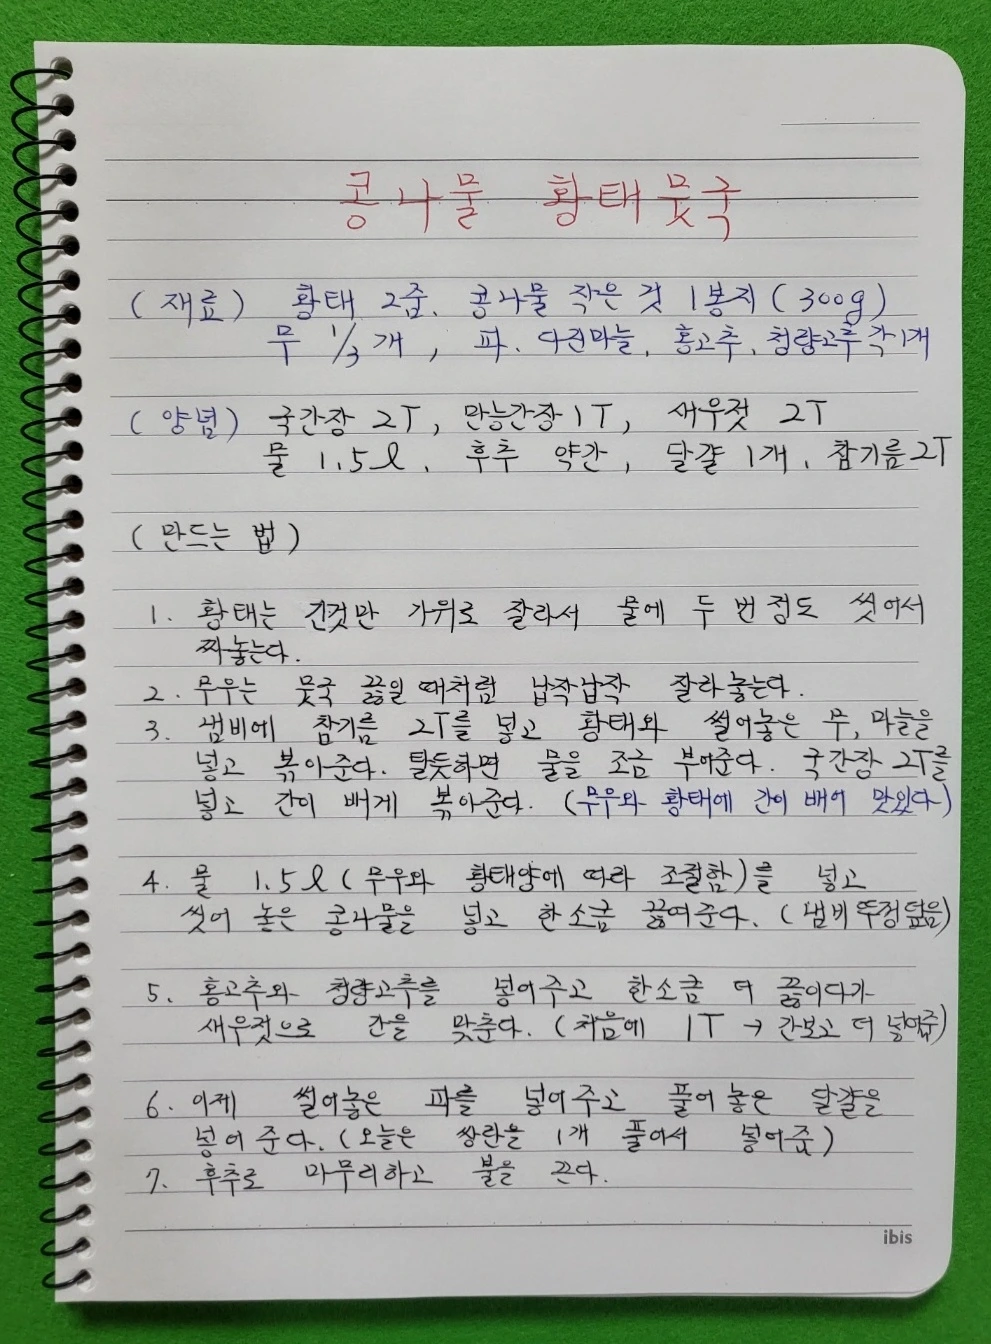 콩나물 황태뭇국
(재료) 황태 2줌, 콩나물 작은 것 1봉지 (300g)
무 1/3개, 파, 다진마늘, 홍고추, 청량고추 각1개
(양념) 국간장 2T, 만능간장 1T, 새우젓 2T
물 1.5ℓ, 후추 약간, 달걀 1개, 참기름 2T
(만드는 법)
1. 황태는 긴것만 가위로 잘라서 물에 두 번 정도 씻어서
짜놓는다.
2. 무우는 뭇국 끓일 때처럼 납작납작 잘라놓는다.
3. 냄비에 참기름 2T를 넣고 황태와 썰어놓은 무, 마늘을
넣고 볶아준다. 탈듯하면 물을 조금 부어준다. 국간장 2T를
넣고 간이 배게 볶아준다. (무우와 황태에 간이 배어 맛있다)
4. 물 1.5ℓ (무우와 황태양에 따라 조절함)를 넣고
씻어 놓은 콩나물을 넣고 한소금 끓여준다. (냄비 뚜껑 덮음)
5. 홍고추와 청량고추를 넣어주고 한소금 더 끓이다가
새우젓으로 간을 맞춘다. (처음에 1T → 간보고 더 넣어줌)
6. 이제 썰어놓은 파를 넣어주고 풀어놓은 달걀을
넣어준다. (오늘은 쌍란을 1개 풀어서 넣어줬)
7. 후추로 마무리하고 불을 끈다.
ibis